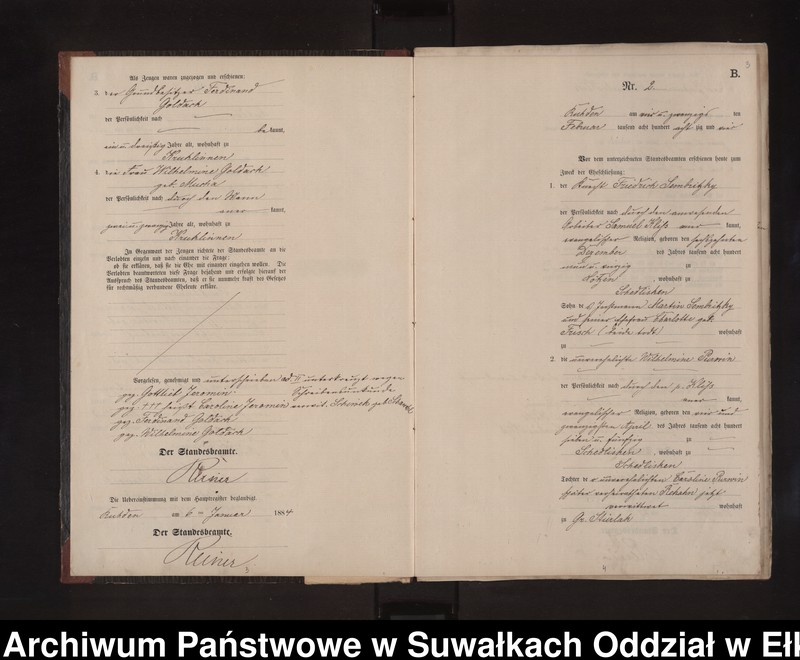 Als Zeugen waren zugezogen und erschienen:
3. der Grundbesitzer Ferdinand
Goldack
der Persönlichkeit nach
be kannt,
ein u. dreißig Jahre alt, wohnhaft zu
Kruklinnen
4. die Frau Wilhelmine Goldack
geb. Mucha
der Persönlichkeit nach durch den Mann
aner kannt,
zwei u. zwanzig Jahre alt, wohnhaft zu
Kruklinnen
In Gegenwart der Zeugen richtete der Standesbeamte an die
Verlobten einzeln und nach einander die Frage:
ob sie erklären, daß sie die Ehe mit einander eingehen wollen. Die
Verlobten beantworteten diese Frage bejahend und erfolgte hierauf der
Ausspruch des Standesbeamten, daß er sie nunmehr kraft des Gesetzes
für rechtmäßig verbundene Eheleute erkläre.
Vorgelesen, genehmigt und unterschrieben u unterkreuzt wegen
Schreibensunkunde
gez. Gottlieb Jeromin
gez. +++ Caroline Jeromin geb.
gez. Ferdinand Goldack
gez. Wilhelmine Goldack
Der Standesbeamte.
Reiner
Die Uebereinstimmung mit dem Hauptregister beglaubigt.
Kuhden am 6 ten Januar 1884
Der Standesbeamte.
Reiner
3
3
B.
Nr. 2.
Kuhden am vier u. zwanzigs ten
Februar tausend acht hundert acht zig und vier
Vor dem unterzeichneten Standesbeamten erschienen heute zum
Zweck der Eheschließung:
1. der Knecht Friedrich Sembritzky
der Persönlichkeit nach durch den anwesenden
Arbeiter Samuel aner kannt,
evangelischer Religion, geboren den sechszehnten
Dezember des Jahres tausend acht hundert
neun u. zu
Lötzen, wohnhaft zu
Schedlisken
Sohn des Instmann Martin Sembritzky
und seiner Ehefrau Charlotte geb.
Friesch (beide todt) wohnhaft
zu
2. die unverehelichte Wilhelmine
der Persönlichkeit nach durch den p.
aner kannt,
evangelischer Religion, geboren den vier und
zwanzigsten April des Jahres tausend acht hundert
sieben u. fünfzig zu
Schedlisken, wohnhaft zu
Schedlisken
Tochter der unverehelichten Caroline
später verheiratheten jetzt
verwittwet wohnhaft
zu Gr. Stürlak
4
Archiwum Państwowe w Suwałkach Oddział w Ełk